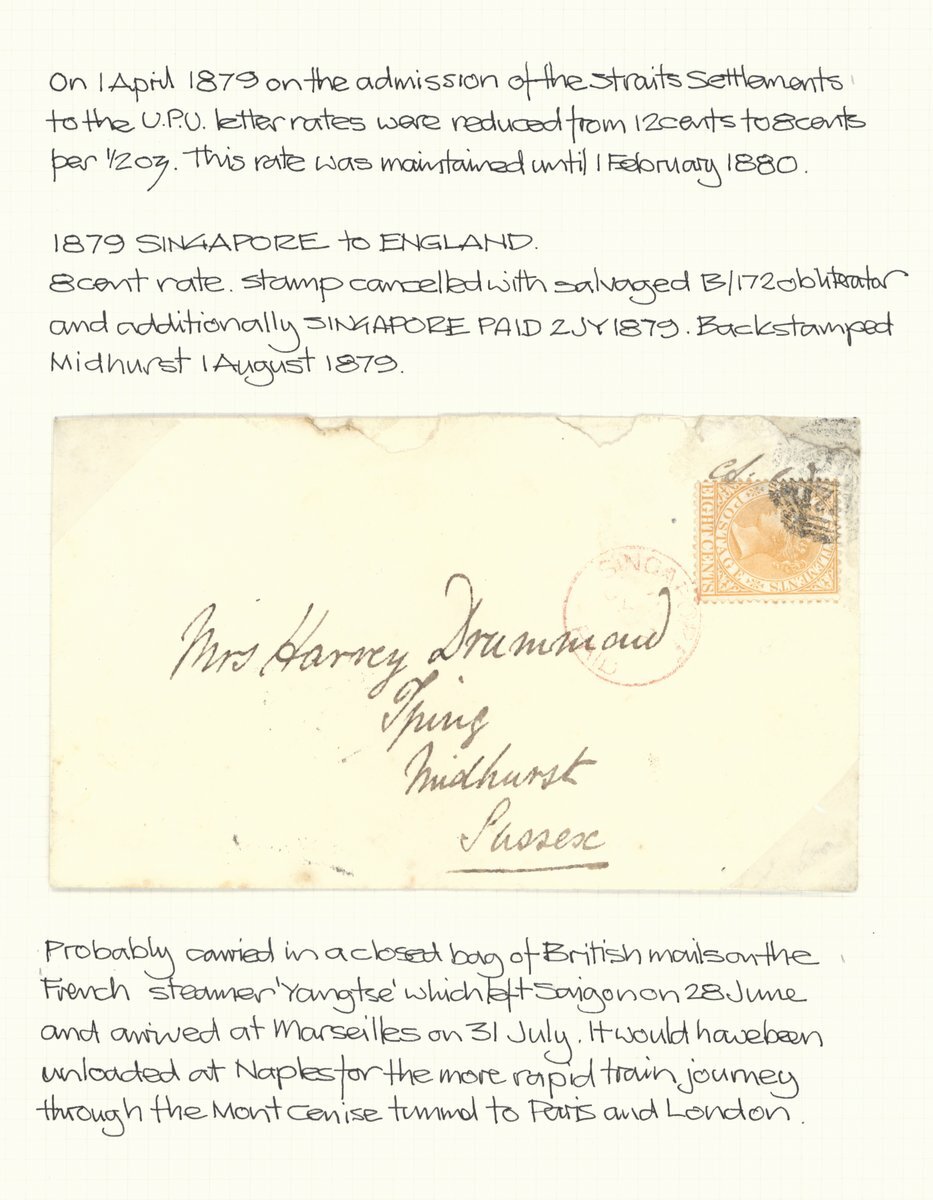 On 1 April 1879 on the admission of the Straits Settlements
to the U.P.U. letter rates were reduced from 12 cents to 8 cents
per ½ oz. This rate was maintained until 1 February 1880.
1879 SINGAPORE to ENGLAND.
8 cent rate. Stamp cancelled with salvaged B/172 obliterator
and additionally SINGAPORE PAID 2 JY 1879. Backstamped
Midhurst 1 August 1879.
EIGHT CENTS
POSTAGE
SINGAPORE
PAID
Mrs Harvey Drummond
Iping
Midhurst
Sussex
Probably carried in a closed bag of British mails on the
French steamer 'Yangtse' which left Saigon on 28 June
and arrived at Marseilles on 31 July. It would have been
unloaded at Naples for the more rapid train journey
through the Mont Cenise tunnel to Paris and London.